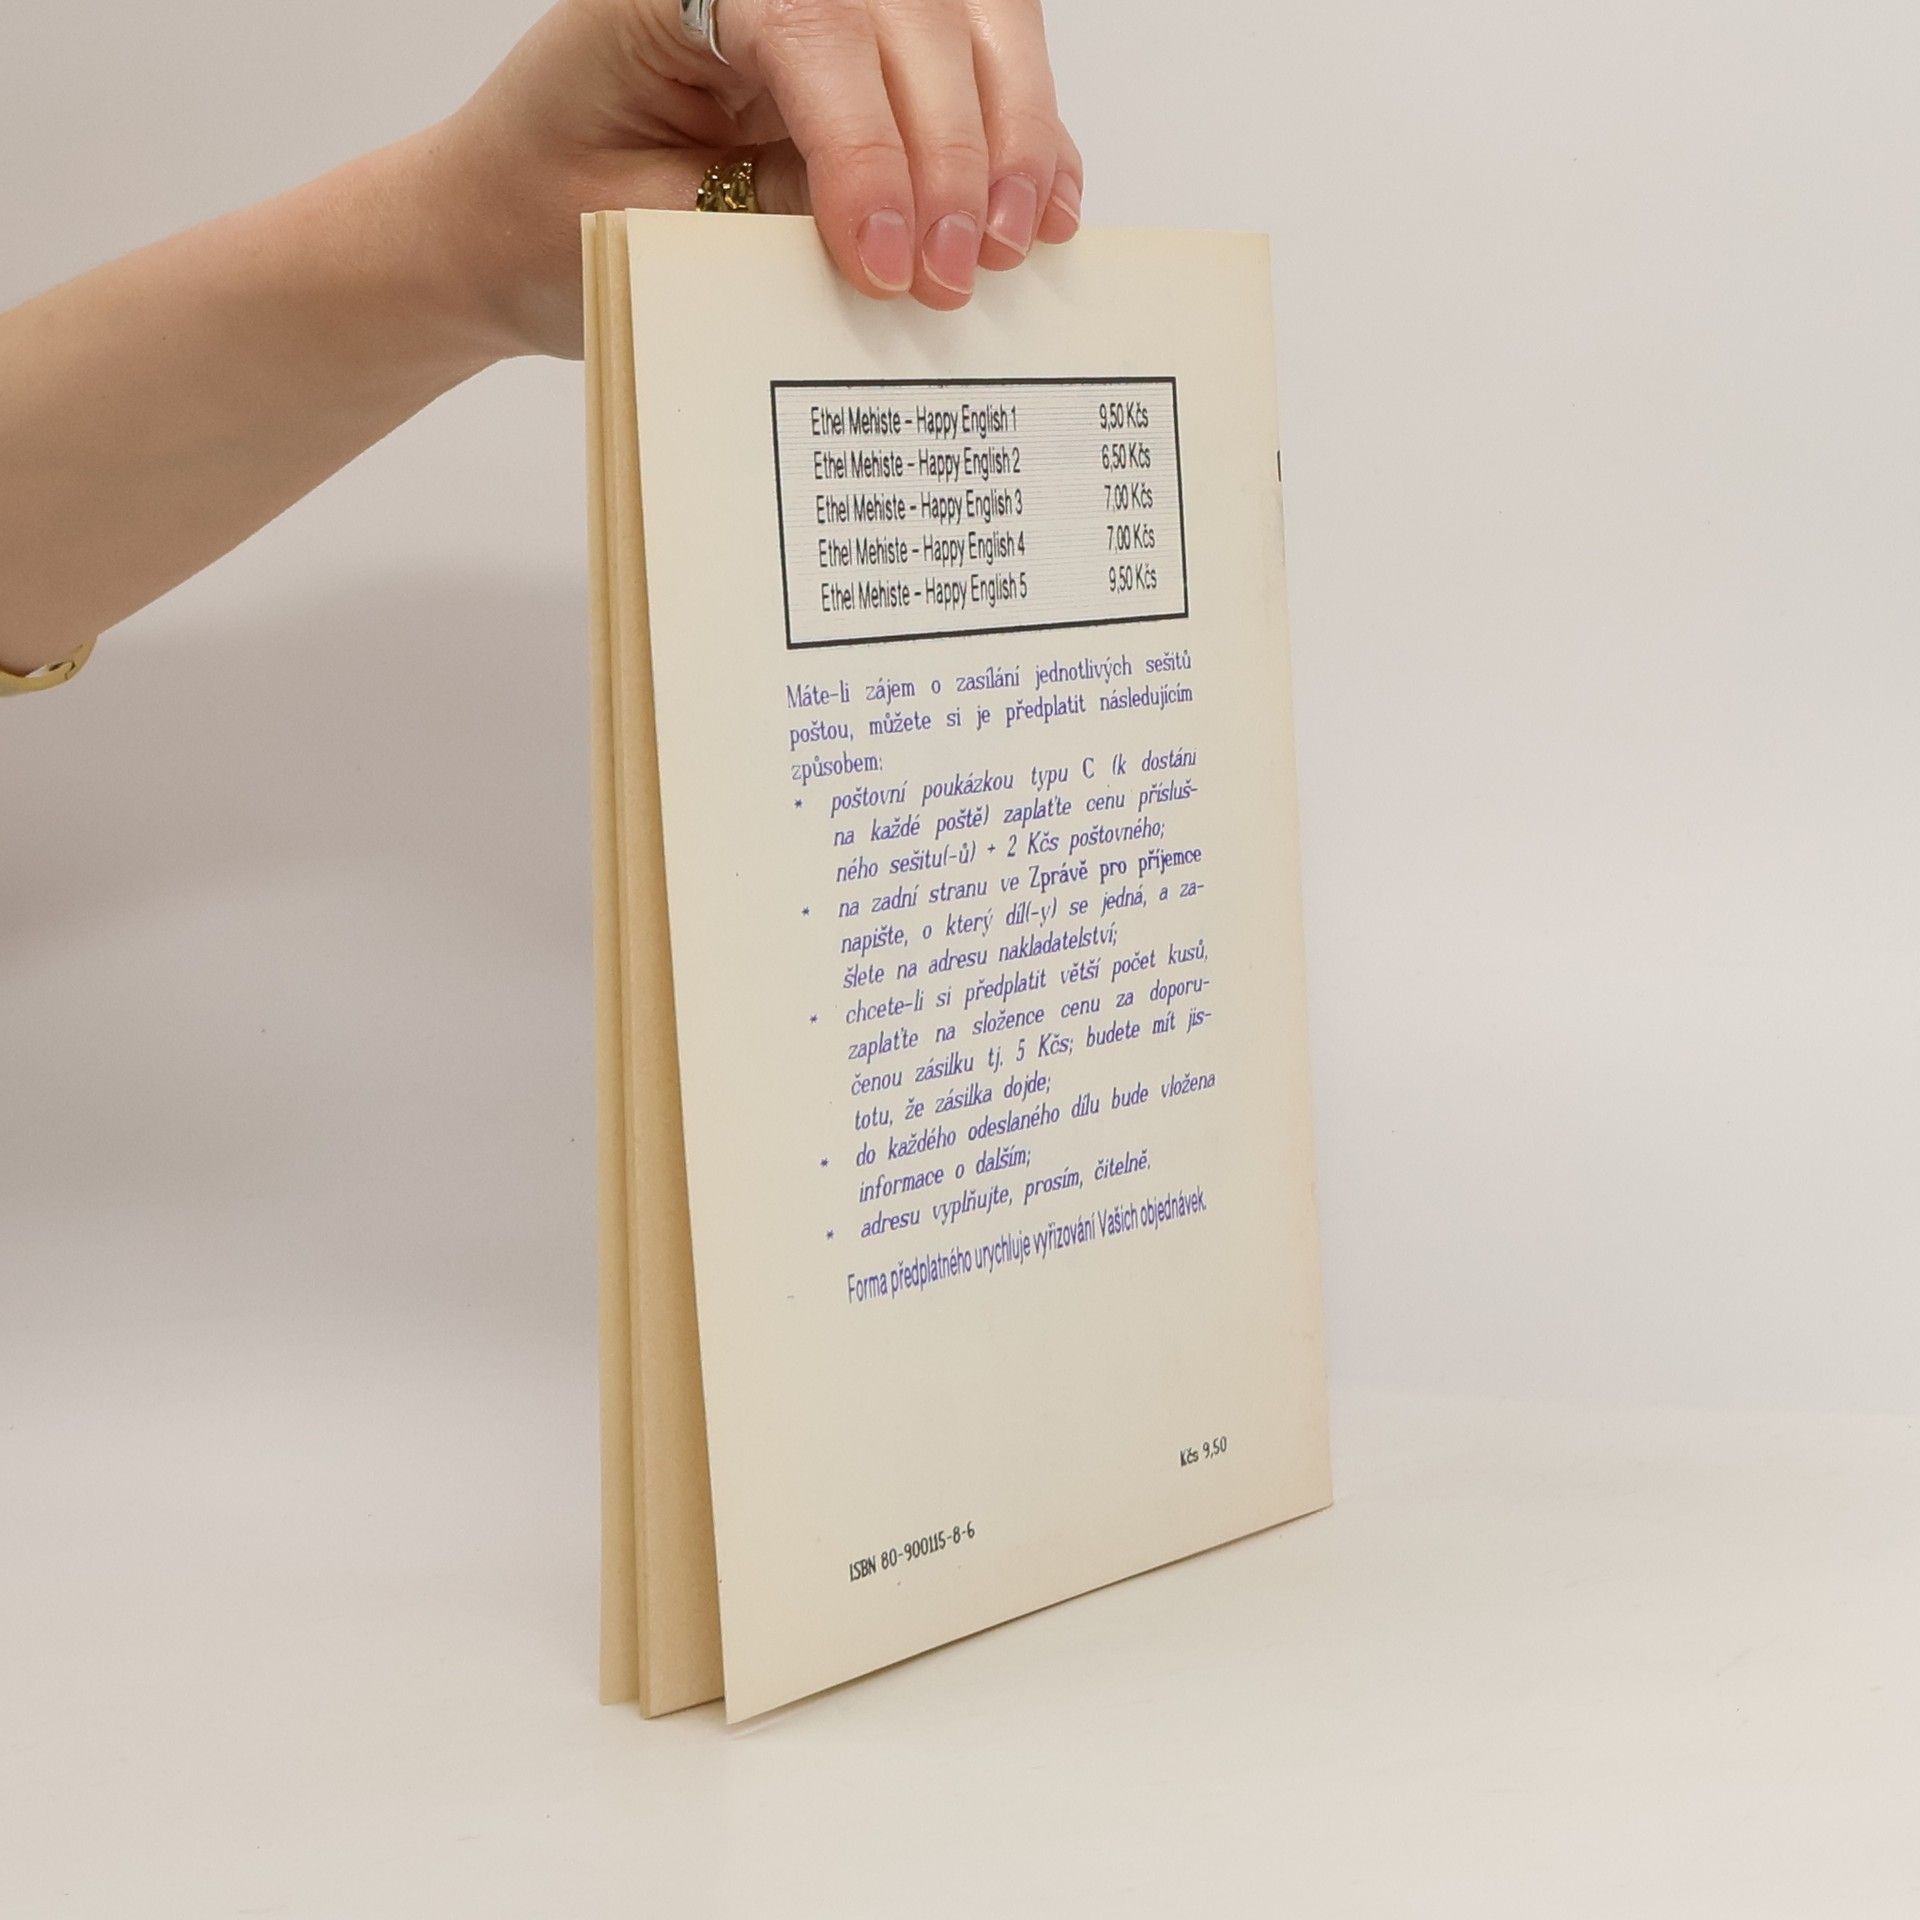 Ethel Mehiste – Happy English 1 9,50 Kčs
Ethel Mehiste – Happy English 2 6,50 Kčs
Ethel Mehiste – Happy English 3 7,00 Kčs
Ethel Mehiste – Happy English 4 7,00 Kčs
Ethel Mehiste – Happy English 5 9,50 Kčs
Máte-li zájem o zasílání jednotlivých sešitů
poštou, můžete si je předplatit následujícím
způsobem:
* poštovní poukázkou typu C (k dostání
na každé poště) zaplaťte cenu přísluš-
ného sešitu(-ů) + 2 Kčs poštovného;
* na zadní stranu ve Zprávě pro příjemce
napište, o který díl(-y) se jedná, a za-
šlete na adresu nakladatelství;
* chcete-li si předplatit větší počet kusů,
zaplaťte na složence cenu za doporu-
čenou zásilku tj. 5 Kčs; budete mít jis-
totu, že zásilka dojde;
* do každého odeslaného dílu bude vložena
informace o dalším;
* adresu vyplňujte, prosím, čitelně.
Forma předplatného urychluje vyřizování Vašich objednávek.
Kčs 9,50
ISBN 80-900115-8-6